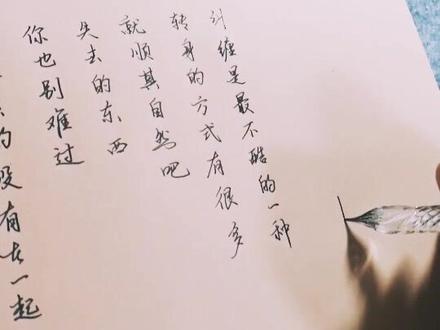 的没有在一起
你也别难过
失去的东西
就顺其自然吧
转身的方式有很多
纠缠是最不酷的一种